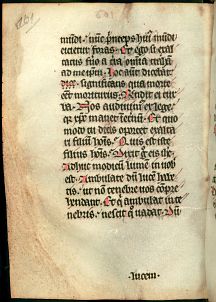 mūdi. nūc prīceps huī mūdi
eicietur foras. Et ego si exal
tatus fuero a t̄ra oīnia trahā
ad meipm̄. Hoc autē dicebat
significans qua morte
esset moriturus. Rn̄dit ei tur
ba. Nos audiuim̄ ex lege
qr xp̄c manet ī et̄nū. Et quo
modo tu dicis oportet exalta
ri filiū hoīs. Quis est iste
filius hoīs. Dixit g̊ eis ihc̄
Adhuc modicū lumē in uob
est. Ambulate dū lucē habe
tis. ut nō tenebre uos cōpre
hendant. Et q̄ ambulat in te
nebris. nescit q̊ uadat. Dū
lucem